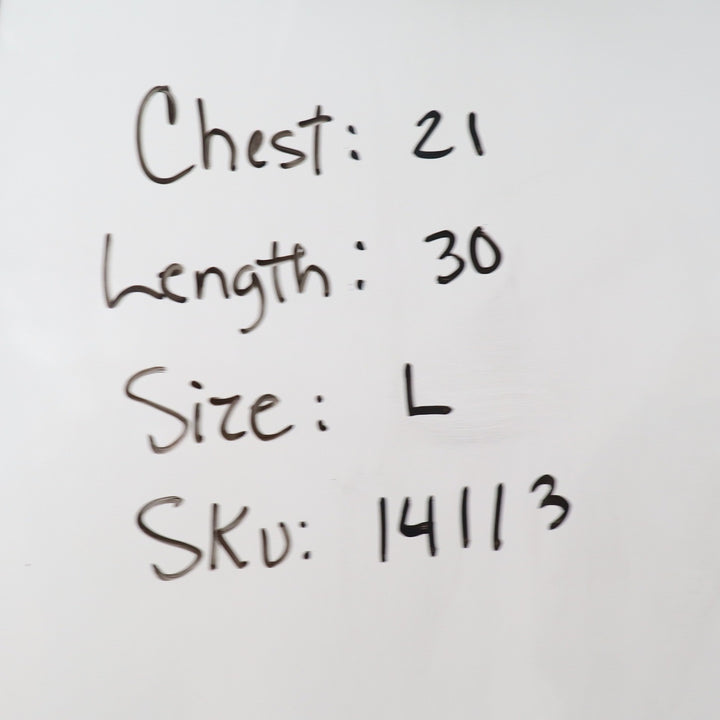 Chest: 21
Length: 30
Size: L
SKU: 14113